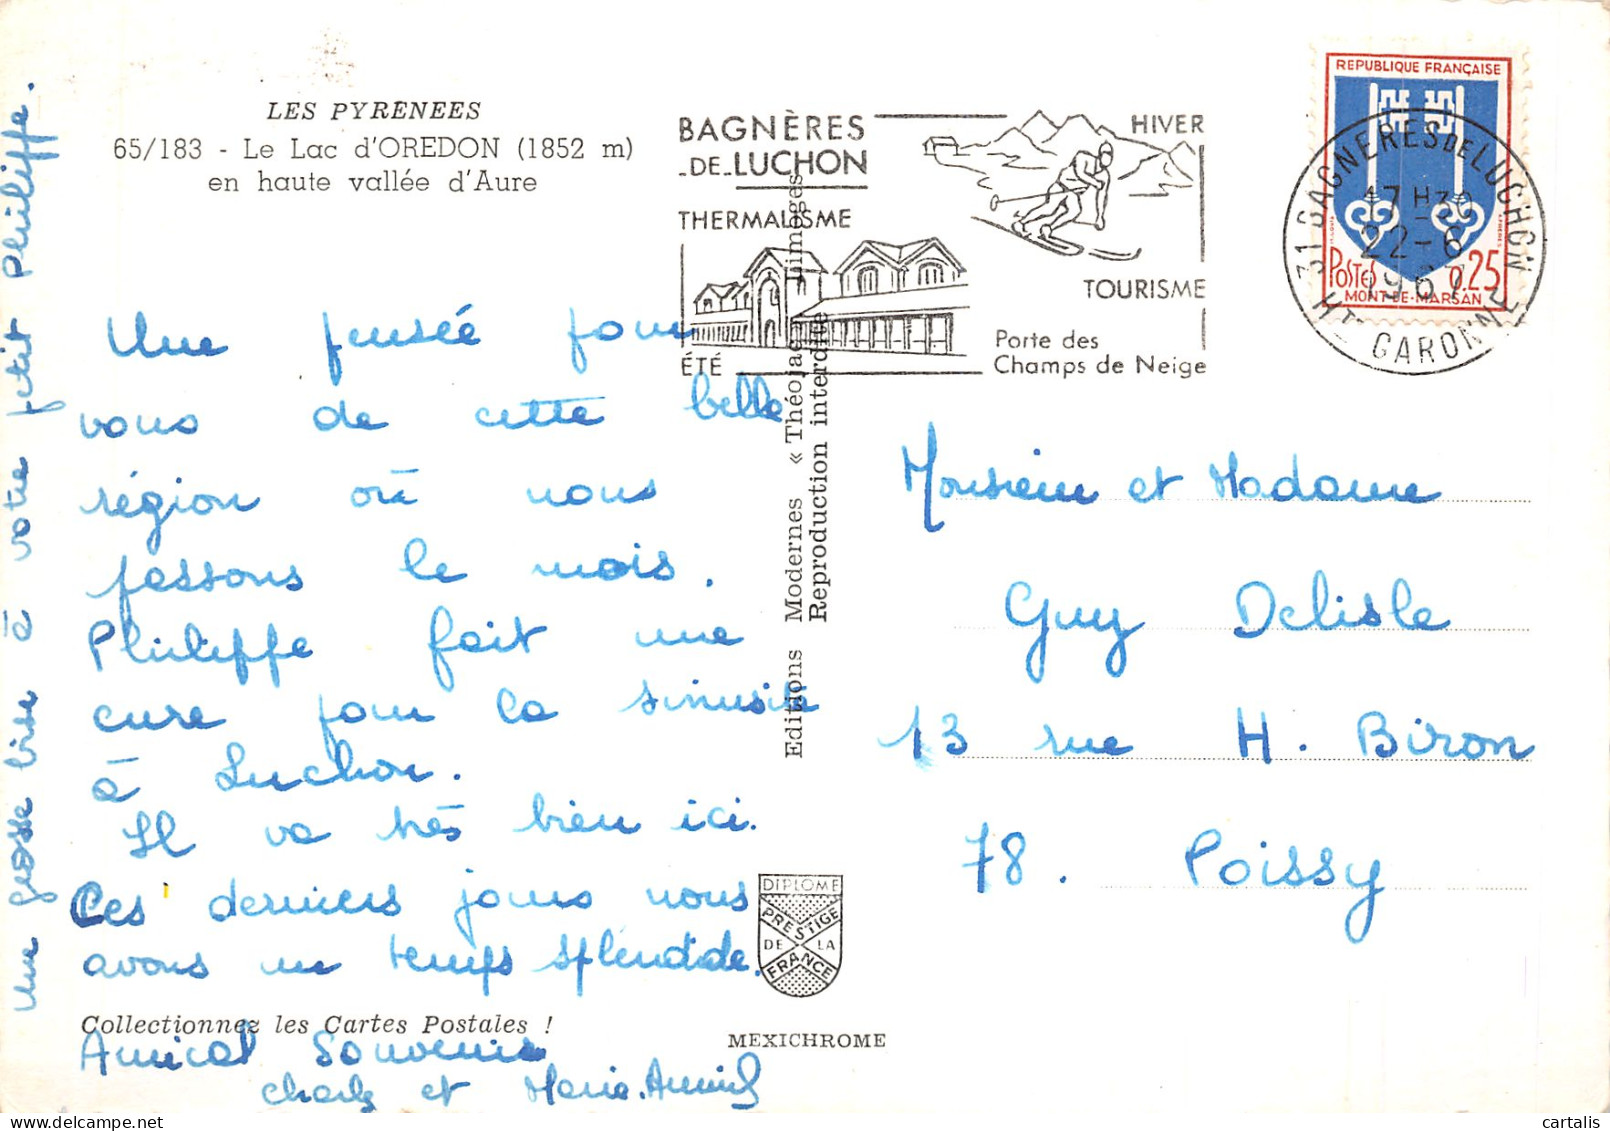 LES PYRENEES
65/183 - Le Lac d'OREDON (1852 m)
en haute vallée d'Aure
BAGNÈRES
-DE-LUCHON
THERMALISME
ÉTÉ
HIVER
TOURISME
Porte des
Champs de Neige
REPUBLIQUE FRANÇAISE
POSTES 0.25
MONT-DE-MARSAN
31 BAGNERES DE LUCHON
17 H 30
22-6
1967
HTE GARONNE
Une pensée pour
vous de cette belle
région où nous
passons le mois.
Philippe fait une
cure pour la sinusite
à Luchon.
Il va très bien ici.
Ces derniers jours nous
avons un temps splendide.
Amical Souvenir
Charly et Marie.
une grosse bise à votre petit Philippe.
Editions Modernes « Théojac » Limoges
Reproduction interdite
Monsieur et Madame
Guy Delisle
13 rue H. Biron
78. Poissy
DIPLOME
PRESTIGE
DE LA
FRANCE
Collectionnez les Cartes Postales !
MEXICHROME
cartalis